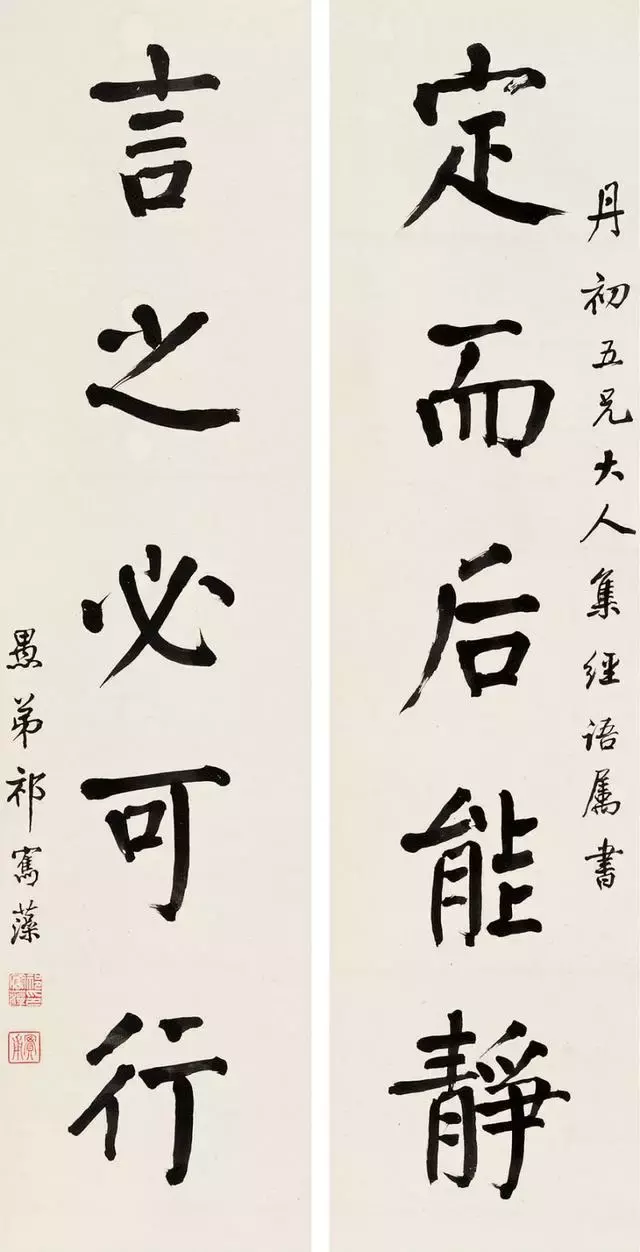 丹初五兄大人集經語屬書
定而后能靜
言之必可行
愚弟祁寯藻